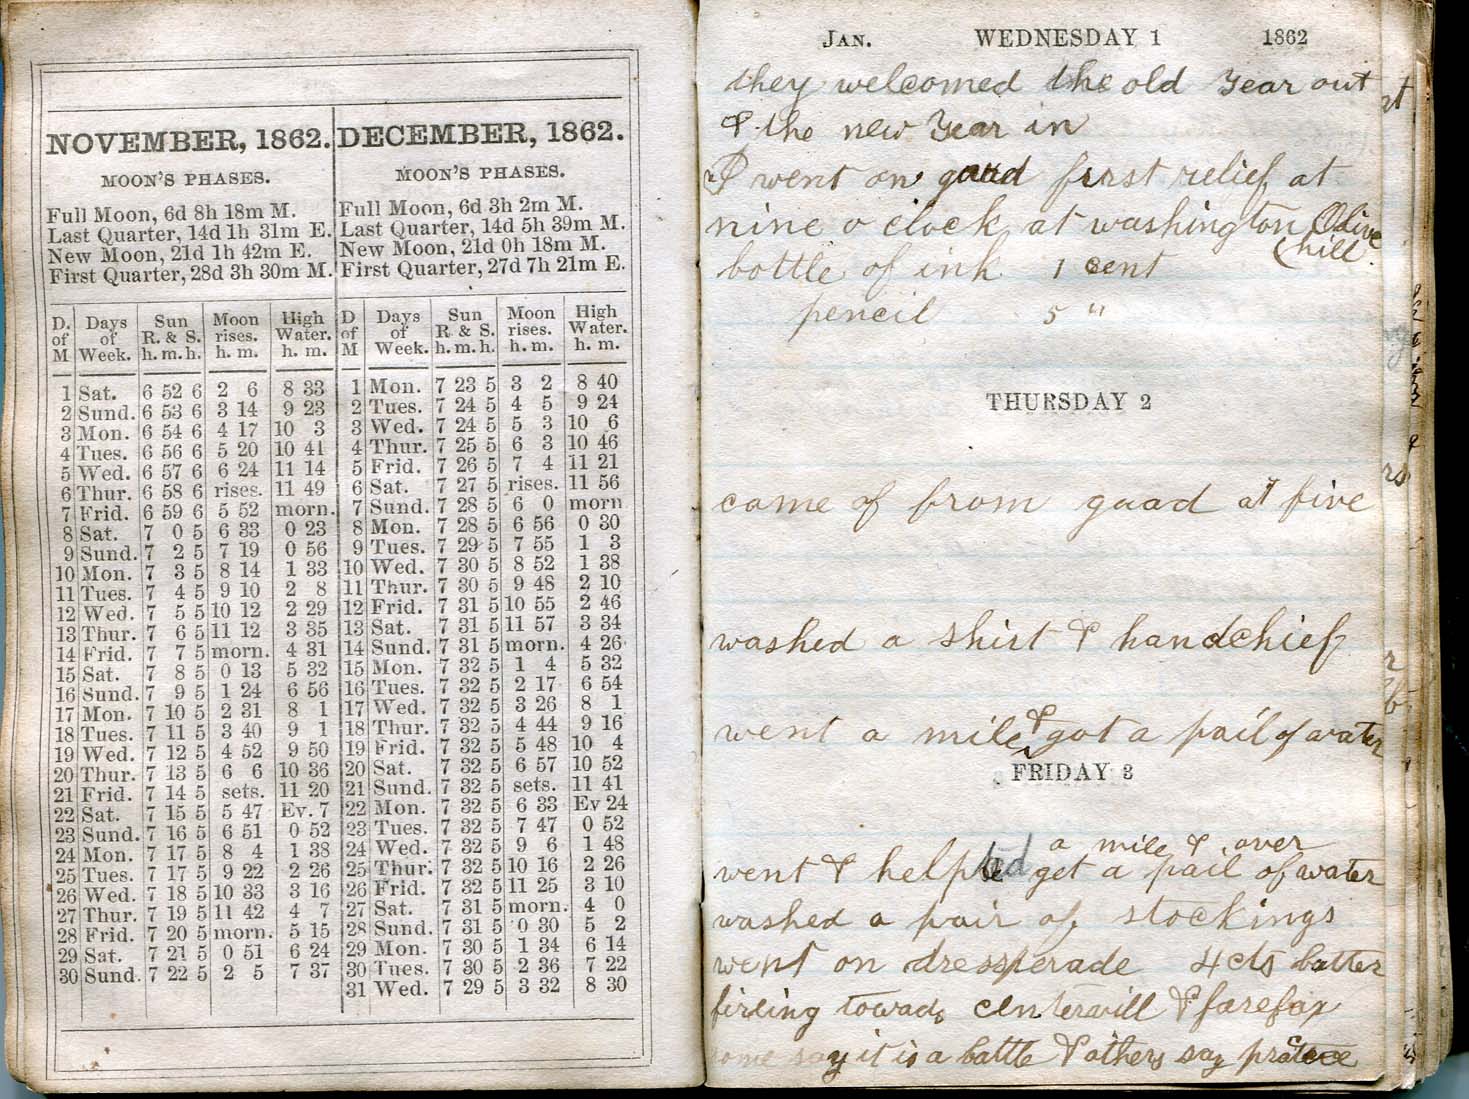 NOVEMBER, 1862.
MOON'S PHASES.
Full Moon, 6d 8h 18m M.
Last Quarter, 14d 1h 31m E.
New Moon, 21d 1h 42m E.
First Quarter, 28d 3h 30m M.
D. of M Days of Week. Sun R. & S. h. m. h. Moon rises. h. m. High Water. h. m.
1 Sat. 6 52 6 2 6 8 33
2 Sund. 6 53 6 3 14 9 23
3 Mon. 6 54 6 4 17 10 3
4 Tues. 6 56 6 5 20 10 41
5 Wed. 6 57 6 6 24 11 14
6 Thur. 6 58 6 rises. 11 49
7 Frid. 6 59 6 5 52 morn.
8 Sat. 7 0 5 6 33 0 23
9 Sund. 7 2 5 7 19 0 56
10 Mon. 7 3 5 8 14 1 33
11 Tues. 7 4 5 9 10 2 8
12 Wed. 7 5 5 10 12 2 29
13 Thur. 7 6 5 11 12 3 35
14 Frid. 7 7 5 morn. 4 31
15 Sat. 7 8 5 0 13 5 32
16 Sund. 7 9 5 1 24 6 56
17 Mon. 7 10 5 2 31 8 1
18 Tues. 7 11 5 3 40 9 1
19 Wed. 7 12 5 4 52 9 50
20 Thur. 7 13 5 6 6 10 36
21 Frid. 7 14 5 sets. 11 20
22 Sat. 7 15 5 5 47 Ev. 7
23 Sund. 7 16 5 6 51 0 52
24 Mon. 7 17 5 8 4 1 38
25 Tues. 7 17 5 9 22 2 26
26 Wed. 7 18 5 10 33 3 16
27 Thur. 7 19 5 11 42 4 7
28 Frid. 7 20 5 morn. 5 15
29 Sat. 7 21 5 0 51 6 24
30 Sund. 7 22 5 2 5 7 37
DECEMBER, 1862.
MOON'S PHASES.
Full Moon, 6d 3h 2m M.
Last Quarter, 14d 5h 39m M.
New Moon, 21d 0h 18m M.
First Quarter, 27d 7h 21m E.
D of M Days of Week. Sun R. & S. h. m. h. Moon rises. h. m. High Water. h. m.
1 Mon. 7 23 5 3 2 8 40
2 Tues. 7 24 5 4 5 9 24
3 Wed. 7 24 5 5 3 10 6
4 Thur. 7 25 5 6 3 10 46
5 Frid. 7 26 5 7 4 11 21
6 Sat. 7 27 5 rises. 11 56
7 Sund. 7 28 5 6 0 morn
8 Mon. 7 28 5 6 56 0 30
9 Tues. 7 29 5 7 55 1 3
10 Wed. 7 30 5 8 52 1 38
11 Thur. 7 30 5 9 48 2 10
12 Frid. 7 31 5 10 55 2 46
13 Sat. 7 31 5 11 57 3 34
14 Sund. 7 31 5 morn. 4 26
15 Mon. 7 32 5 1 4 5 32
16 Tues. 7 32 5 2 17 6 54
17 Wed. 7 32 5 3 26 8 1
18 Thur. 7 32 5 4 44 9 16
19 Frid. 7 32 5 5 48 10 4
20 Sat. 7 32 5 6 57 10 52
21 Sund. 7 32 5 sets. 11 41
22 Mon. 7 32 5 6 33 Ev 24
23 Tues. 7 32 5 7 47 0 52
24 Wed. 7 32 5 9 6 1 48
25 Thur. 7 32 5 10 16 2 26
26 Frid. 7 32 5 11 25 3 10
27 Sat. 7 31 5 morn. 4 0
28 Sund. 7 31 5 0 30 5 2
29 Mon. 7 30 5 1 34 6 14
30 Tues. 7 30 5 2 36 7 22
31 Wed. 7 29 5 3 32 8 30
JAN. WEDNESDAY 1 1862
they welcomed the old year out
& the new Year in
I went on guard first relief at
nine o clock at washington Olive
hill.
bottle of ink 1 cent
pencil 5 "
THURSDAY 2
came of from guad at five
washed a shirt & handchief
went a mile & got a pail of water
FRIDAY 3
a mile & over
went & helped get a pail of water
washed a pair of stockings
went on dressperade 4 cts butter
firling towads centervill & farefax
some say it is a battle & others say